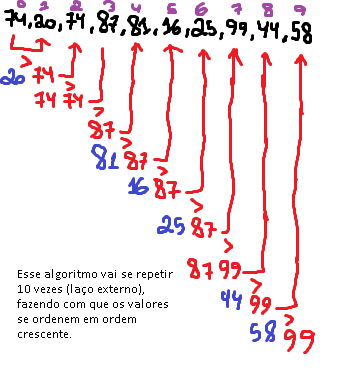 0 1 2 3 4 5 6 7 8 9
74,20,74,87,81,16,25,99,44,58
>
20 74 >
74 74 >
87 >
81 87 >
16 87 >
25 87 >
87 99 >
44 99 >
58 99
Esse algoritmo vai se repetir
10 vezes (laço externo),
fazendo com que os valores
se ordenem em ordem
crescente.